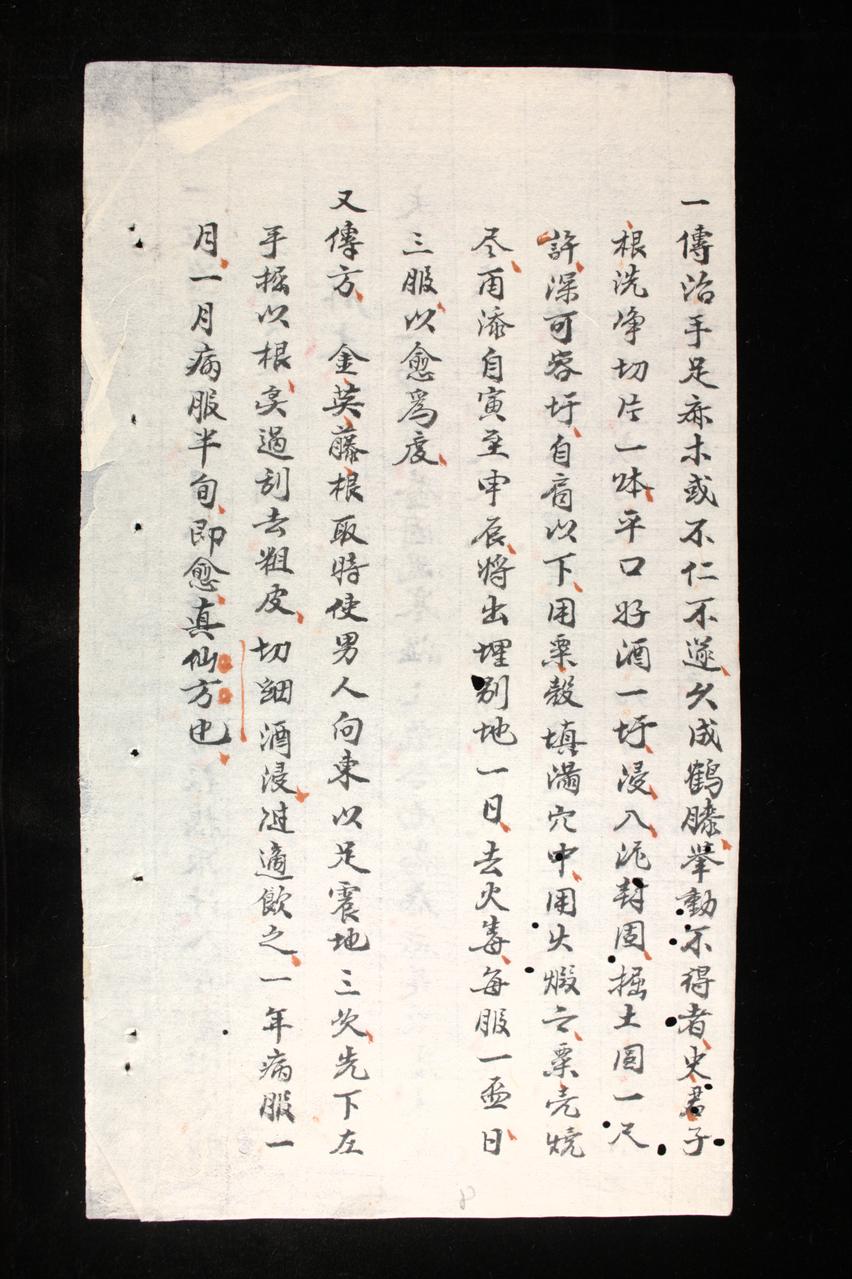 一傳治手足麻木或不仁不遂久成鶴膝舉動不得者史君子
根洗净切片一体平口好酒一圩浸入泥封固掘土囼一尺
許深可容圩自肩以下用粟殼填滿穴中用火煅之粟壳燒
尽再添自寅至申辰將出埋别地一日去火毒每服一盃日
三服以愈爲度
又傳方 金英藤根取時使男人向東以足震地三次先下左
手掘以根矣過刮去粗皮切細酒浸進適飲之一年病服一
月一月病服半旬即愈真仙方也